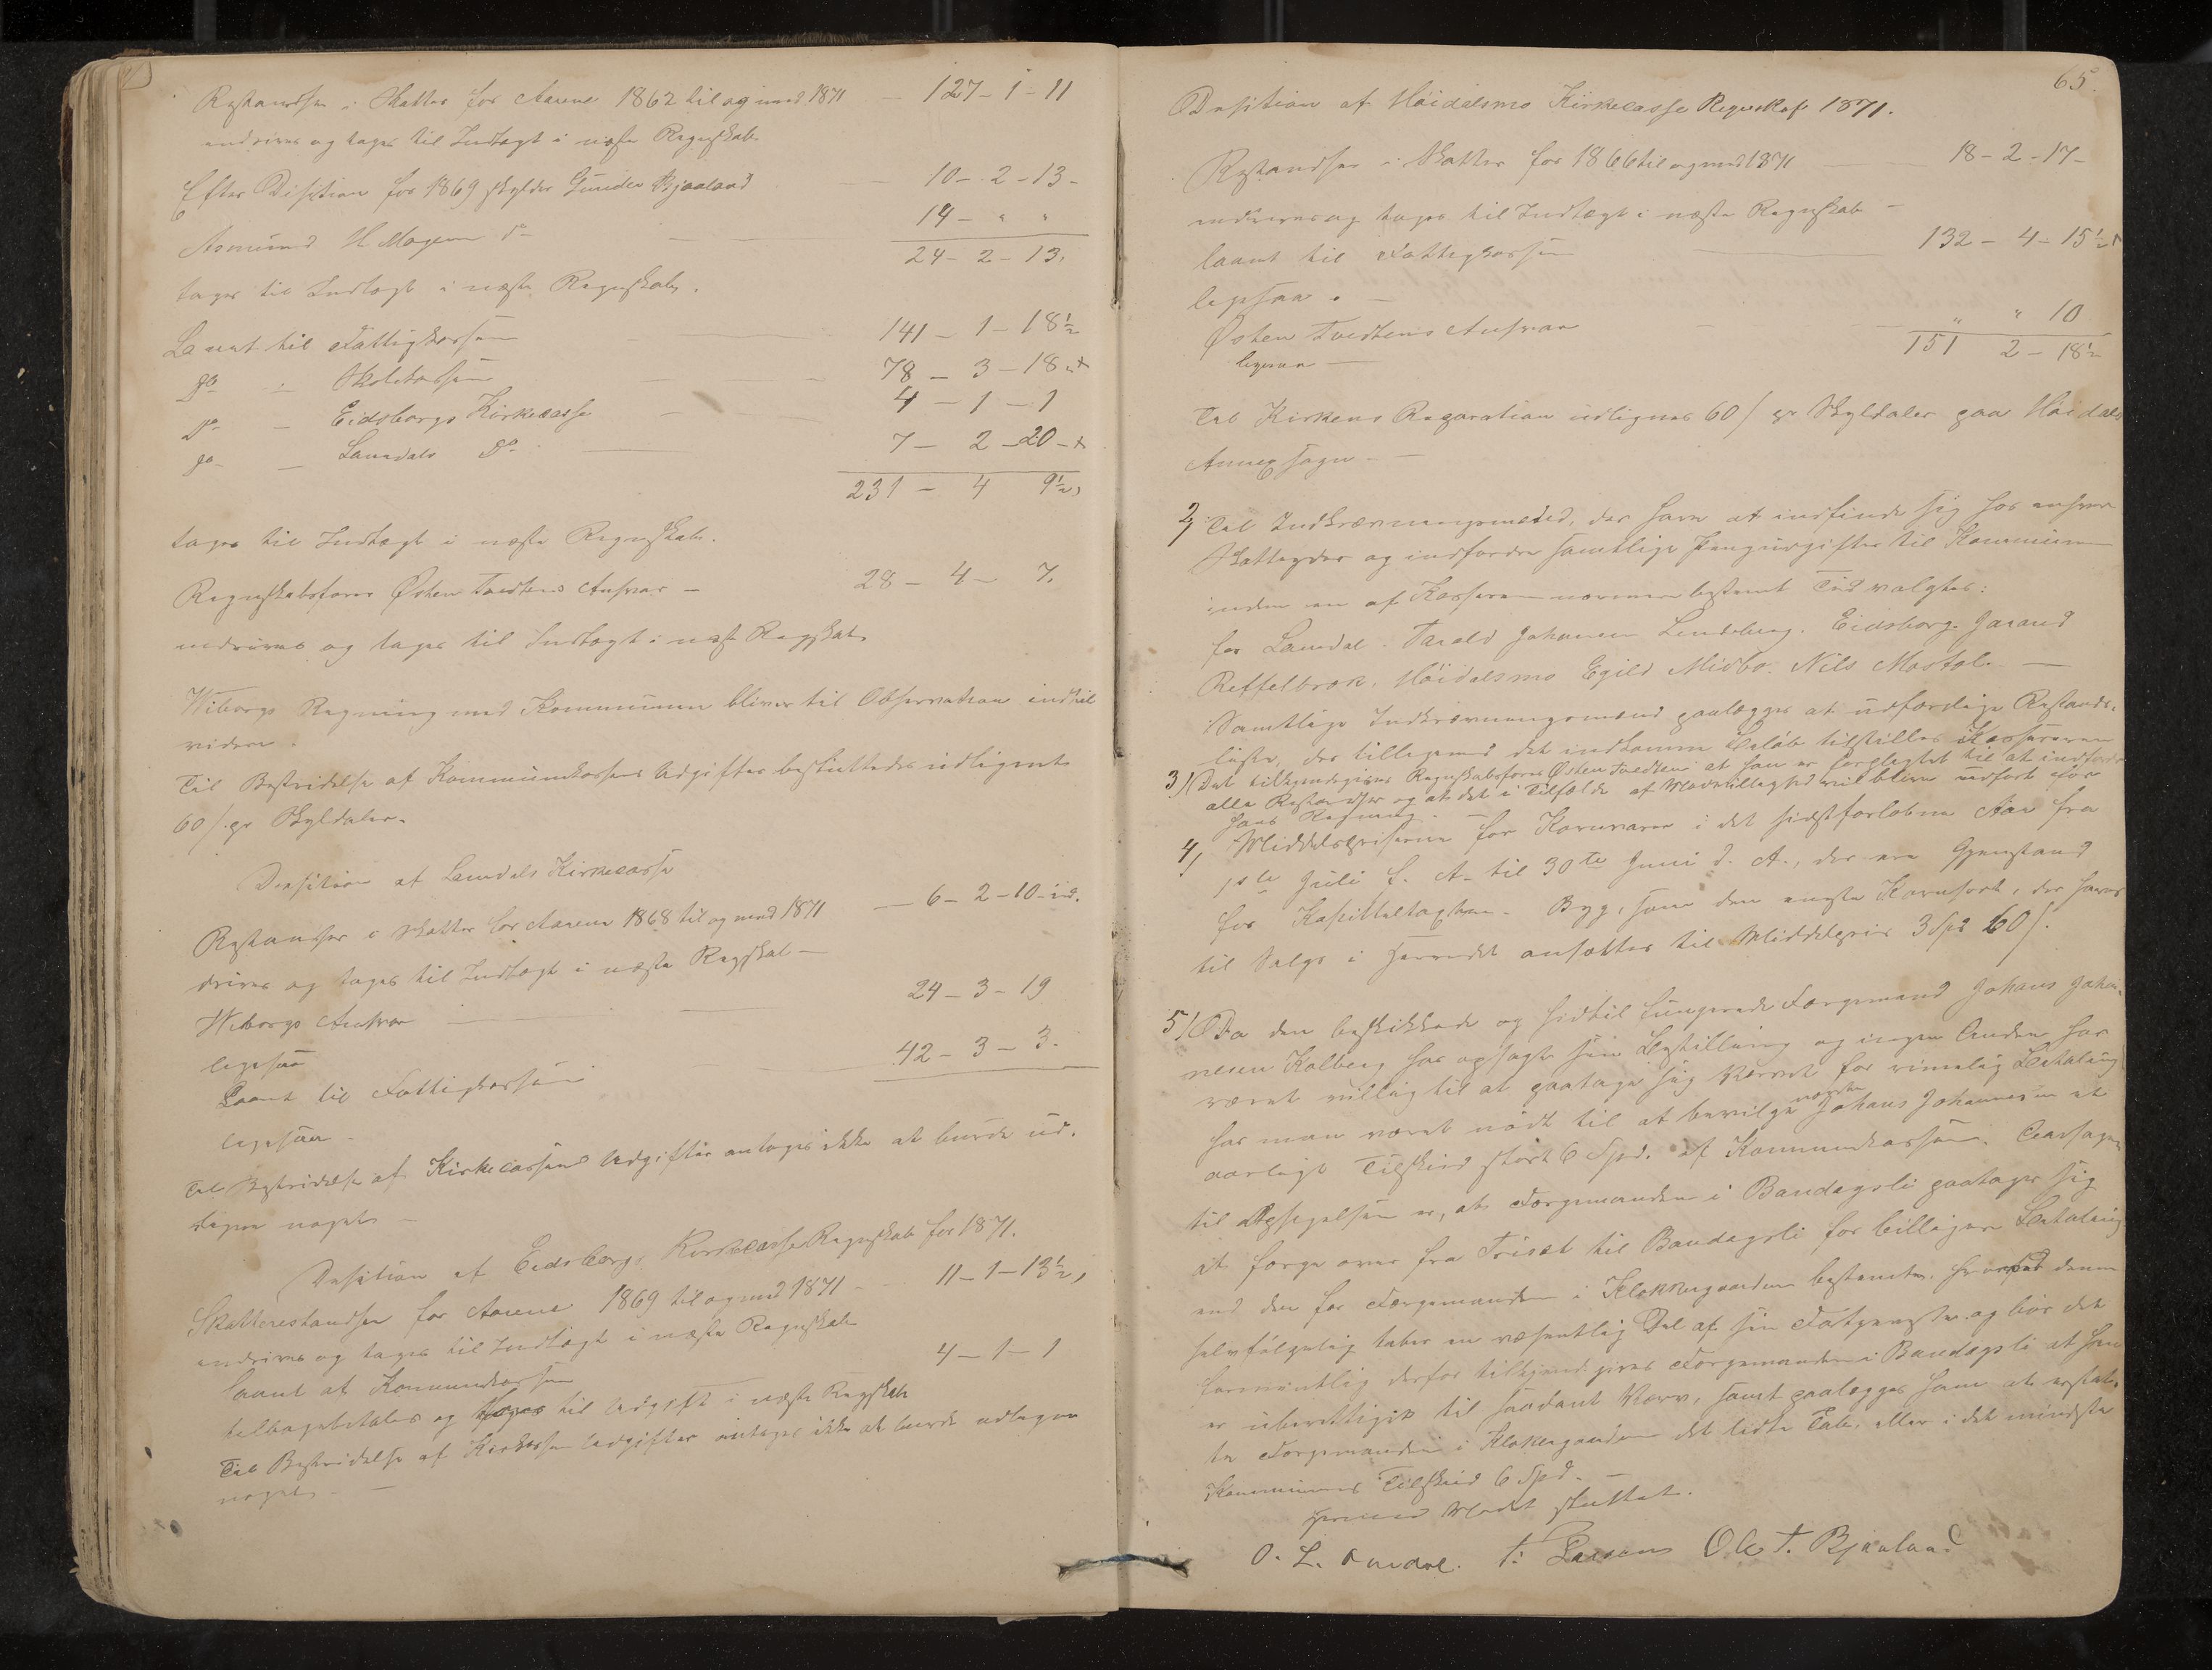 Restandser i Skatter for Aarene 1862 til og med 1871 — 127 - 1 - 11
inddrives og tages til Indtægt i næste Regnskab
Efter Disition for 1869 skylder Gunder Bjaaland — 10 - 2 - 13 -
Asmund H Mogen do — 14 - " "
24 - 2 - 13.
tages til Indtægt i næste Regnskab.
Laant til Fattigkassen — 141 - 1 - 18½
do - Skolekassen — 78 - 3 - 18
do - Eidsborgs Kirkecasse — 4 - 1 - 1
do - Laurdals do — 7 - 2 - 20 -
231 - 4 9½
tages til Indtægt i næste Regnskab.
Regnskabsfører Østen Tvedtens Ansvar — 28 - 4 - 7.
inddrives og tages til Indtægt i næste Regskab
Wiborgs Regning med Kommunen bliver til Observation indtil
videre.
Til Bestridelse af Kommunekassens Udgifter besluttedes udlignet
60 s. pr Skyldaler.
Desition af Laurdals Kirkecasse
Restandser i Skatter for Aarene 1868 til og med 1871 — 6 - 2 - 10 - ind.
drives og tages til Indtægt i næste Regskab —
Wiborgs Ansvar — 24 - 3 - 19
ligesaa
Laant til Fattigkassen — 42 - 3 - 3.
ligesaa -
Til Bestridelse af Kirkecassens Udgifter antages ikke at burde ud-
lignes noget —
Desition af Eidsborgs Kirkecasse Regnskab for 1871.
Skatterestandser for Aarene 1869 til og med 1871 — 11 - 1 - 13½
inddrives og tages til Indtægt i næste Regnskab
Laant af Kommunekassen — 4 - 1 - 1
tilbagebetales og tages til Udgift i næste Regskab
Til Bestridelse af Kirkekassen Udgifter antages ikke at burde udlignes
noget. —
65.
Desition af Höidalsmo Kirkecasse Regnskab 1871.
Restandser i Skatter for 1866 til og med 1871 — 18 - 2 - 17 -
inddrives og tages til Indtægt i næste Regnskab -
laant til Fattigkassen — 132 - 4 - 15½
ligesaa. -
Østen Tvedtens Ansvar — " " 10
ligesaa — 151 2 - 18½
Til Kirkens Reparation udlignes 60 s pr Skyldaler paa Höidals
Annexsogn —
2, Til Indkrævningsmænd, der have at indfinde sig hos enhver
Skatteyder og indfordre samtlige Pengeudgifter til Kommunen
inden en af Kassereren nærmere bestemt Tid valgtes:
for Laurdal. Tarald Johannesen Lindeberg. Eidsborg. Jarand
Reffelbrok. Höidalsmo Egild Midbø. Nils Mostøl. —
Samtlige Indkrævningsmænd paalægges at udfærdige Restance-
liste, der tilligemed det indkomne Beløb tilstilles Kassereren
3) Det tilkjendegives Regnskabsfører Østen Tvedten at han er forpligtet til at indfordre
alle Restandser og at det i Tilfælde af Modvillighed vil blive udført for
hans Regning. —
4, Middelpriserne for Kornvarer i det sidstforløbne Aar fra
1ste Juli f. A. til 30te Juni d. A., der ere Gjenstand
for Kapitteltaxten. Byg, som den eneste Kornsort, der haves
til Salgs i Herredet ansættes til Middelpris 3 Spd 60 s.
5) Da den beskikkede og hidtil fungerede Færgemand Johans Johan-
nesen Kolberg har opsagt sin Bestilling og ingen Anden har
været villig til at paatage sig Hvervet for rimelig Betaling
har man været nødt til at bevilge nævnte Johans Johannesen et
aarligt Tilskud stort 6 Spd. af Kommunekassen. Aarsagen
til Opsigelsen er, at Færgemanden i Bandagsli paatager sig
at færge over fra Triset til Bandagsli for billigere Betaling
end den for Færgemanden i Klokkergaarden bestemte. hvorved denne
selvfølgelig taber en væsentlig Del af sin Fortjeneste og bør det
formentlig derfor tilkjendegives Færgemanden i Bandagsli at han
er uberettiget til saadant Hverv, samt paalægges ham at erstat-
te Færgemanden i Klokkergaarden det lidte Tab, eller i det mindste
Kommunens Tilskud 6 Spd. —
Hermed Mødet sluttet.
O. L. Laurdal. T: Larsen Ole T. Bjaaland